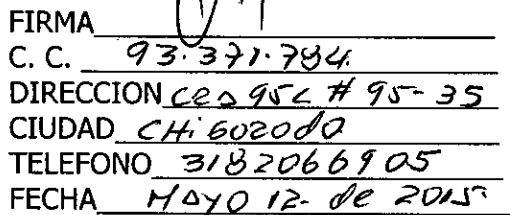 FIRMA
C. C. 93.371.784.
DIRECCION 95C # 95-35
CIUDAD CHiGOROdO
TELEFONO 3182066905
FECHA MAYO 12. de 2015